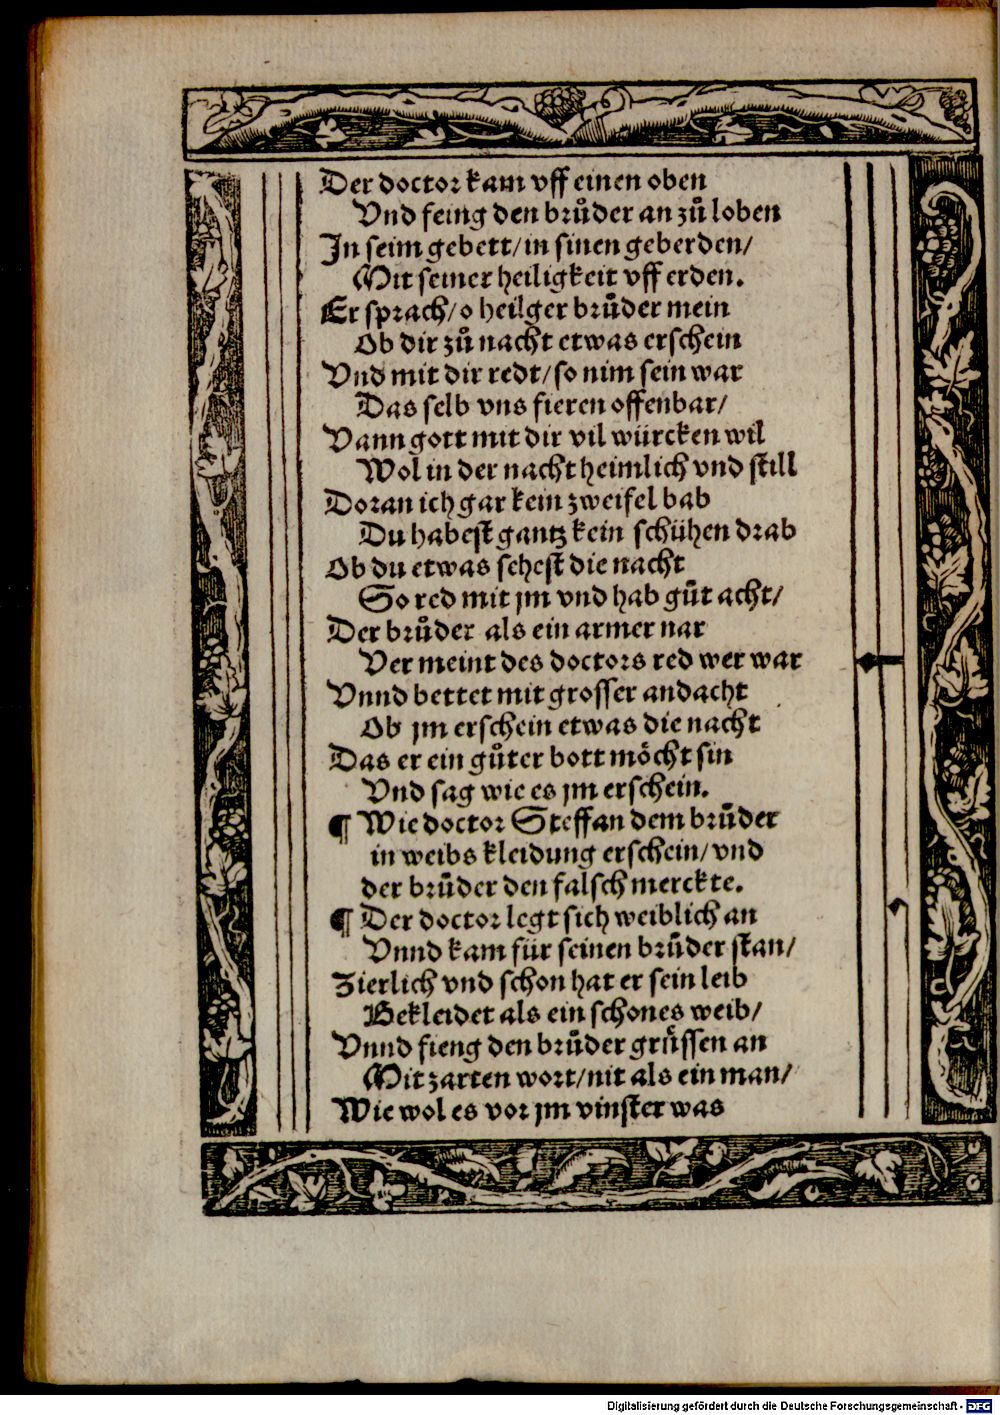 Der doctor kam vff einen oben
Vnd feing den brůder an zů loben
In seim gebett/ in sinen geberden/
Mit seiner heiligkeit vff erden.
Er sprach/ o heilger brůder mein
Ob dir zů nacht etwas erschein
Vnd mit dir redt/ so nim sein war
Das selb vns fieren offenbar/
Vann gott mit dir vil würcken wil
Wol in der nacht heimlich vnd still
Doran ich gar kein zweifel hab
Du habest gantz kein schühen drab
Ob du etwas sehest die nacht
So red mit jm vnd hab gůt acht/
Der brůder als ein armer nar
Ver meint des doctors red wer war
Vnnd bettet mit grosser andacht
Ob jm erschein etwas die nacht
Das er ein gůter bott möcht sin
Vnd sag wie es jm erschein.
¶ Wie doctor Steffan dem brůder
in weibs kleidung erschein/ vnd
der brůder den falsch merckte.
¶ Der doctor legt sich weiblich an
Vnnd kam für seinen brůder stan/
Zierlich vnd schon hat er sein leib
Bekleidet als ein schones weib/
Vnnd fieng den brůder grüssen an
Mit zarten wort/ nit als ein man/
Wie wol es vor jm vinster was
Digitalisierung gefördert durch die Deutsche Forschungsgemeinschaft - DFG